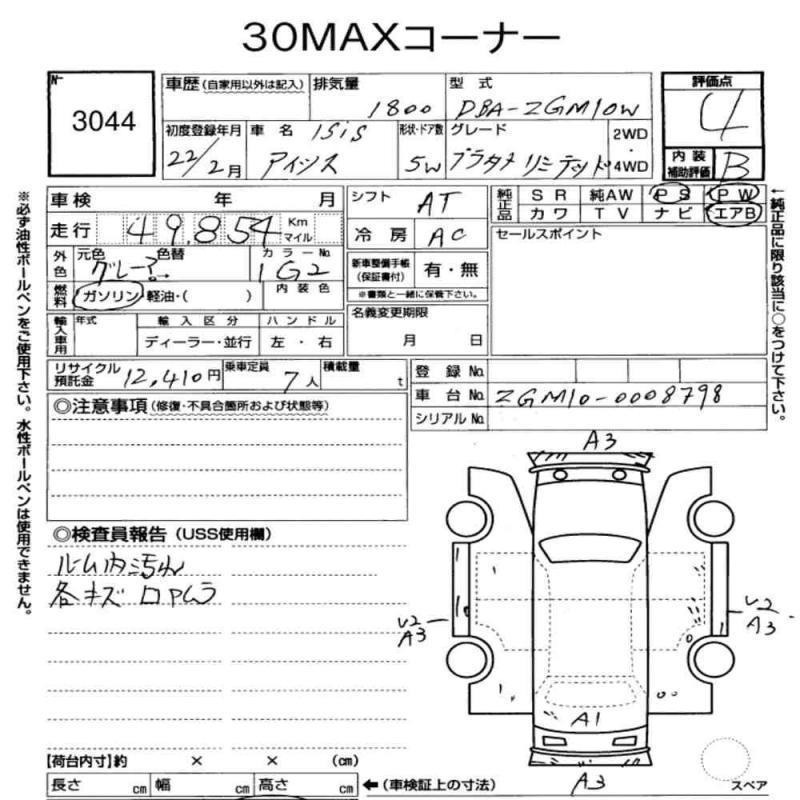 30MAXコーナー
№ 3044
車歴(自家用以外は記入) 排気量 1800 型式 DBA-ZGM10W
初度登録年月 22/2月 車名 isis アイシス 形状・ドア数 5W グレード プラタナ リミテッド 2WD・4WD
評価点 4
内装補助評価 B
車検 年 月
走行 49,854 Km マイル
シフト AT
冷房 AC
純正品 SR 純AW PS PW
カワ TV ナビ エアB
セールスポイント
外色 元色 グレー 色替 カラーNo. 1G2
内装色
燃料 ガソリン・軽油・( )
新車整備手帳(保証書付) 有・無
※書類と一緒に保管下さい。
輸入車用 年式 輸入区分 ハンドル
ディーラー・並行 左・右
名義変更期限
月 日
リサイクル預託金 12,410円 乗車定員 7人 積載量 t
登録No.
車台No. ZGM10-0008798
シリアルNo.
◎注意事項(修復・不具合箇所および状態等)
◎検査員報告(USS使用欄)
ルーム内汚れ
各キズ
A3
V2
A3
V2
A3
A1
A3
スペア
【荷台内寸】約 × × (cm)
長さ cm 幅 cm 高さ cm
←(車検証上の寸法)
※必ず油性ボールペンをご使用下さい。水性ボールペンは使用できません。
←純正品に限り該当に○をつけて下さい。